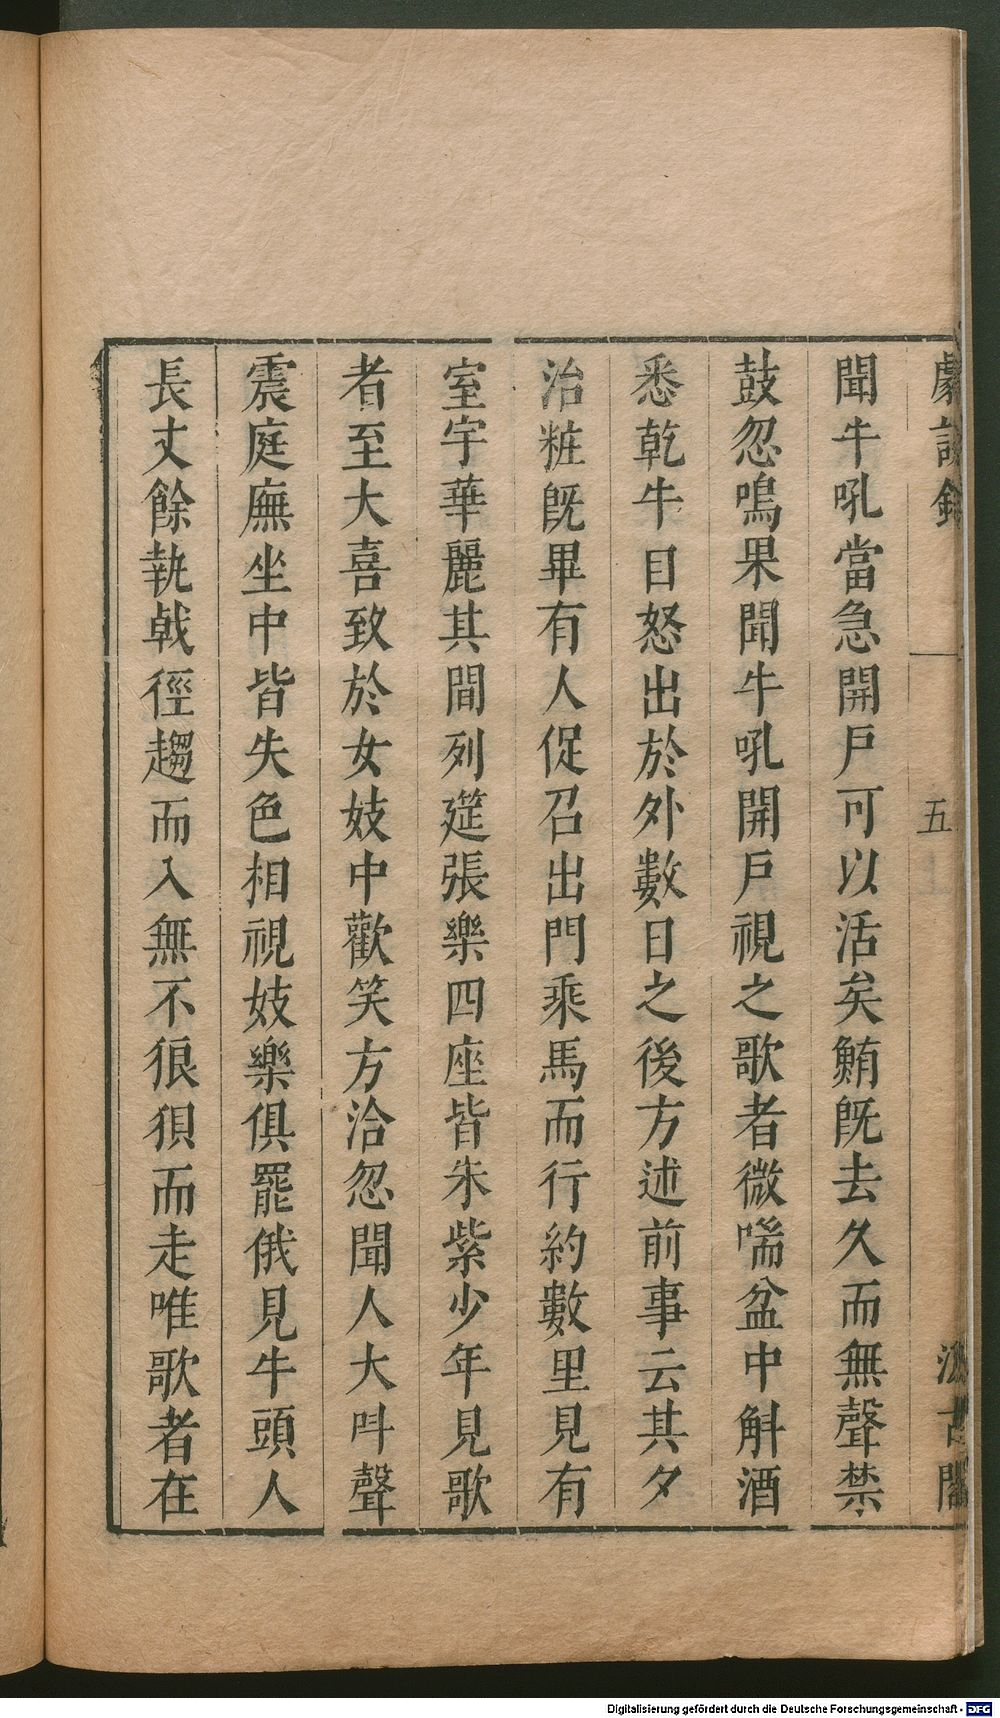 劇談錄 五 汲古閣
聞牛吼當急開戶可以活矣鮪旣去久而無聲禁
鼓忽鳴果聞牛吼開戶視之歌者微喘盆中斛酒
悉乾牛目怒出於外數日之後方述前事云其夕
治粧旣畢有人促召出門乘馬而行約數里見有
室宇華麗其間列筵張樂四座皆朱紫少年見歌
者至大喜致於女妓中歡笑方洽忽聞人大呌聲
震庭廡坐中皆失色相視妓樂俱罷俄見牛頭人
長丈餘執戟徑趨而入無不狼狽而走唯歌者在
Digitalisierung gefördert durch die Deutsche Forschungsgemeinschaft - DFG